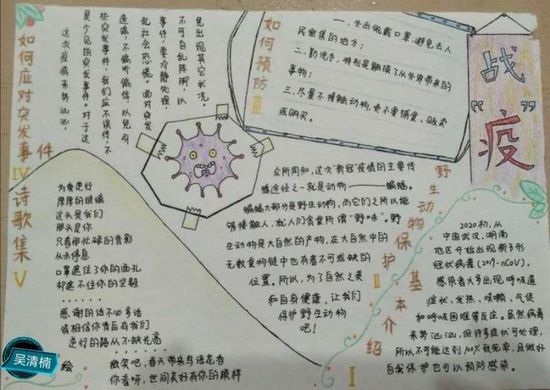 战
“疫”
基本介绍
I
2020初，从
中国武汉，湖南
地区开始出现新形
冠状病毒(2019-nCoV)，
感染者大多出现呼吸道
症状、发热、咳嗽、气促
和呼吸困难等反应。虽然病毒
来势汹汹，但许多症状可处理，
所以不可能达到100%致死率，且做好
自我保护也可以预防感染
野生动物保护
II
众所周知，这次“新冠”疫情的主要传
播途径之一就是动物——蝙蝠。
蝙蝠大部分是野生动物，而它们之所以能
够接触人，就人们食食所谓“野味”。野
生动物是大自然的产物，在大自然中的
无数食物链中也有者不可或缺的
位置。所以，为了自然之美
和自身健康，让我们
保护野生动物
吧！
如何预防
III
一、外出佩戴口罩，避免去人
员密集的地方；
二、勤洗手，特别是触摸了从外界带来的
事物；
三、尽量不接触动物，更不要捕食、贩卖
或购买。
如何应对突发事件
IV
这次疫情来势汹汹，
是少见的突发事件。对于这
些突发事件，我们应不误传，不
造谣，不偏听偏信，以免引
乱社会恐慌。面对突发
事件，要冷静处理，
不可自乱阵脚，以
免出现其它状况。
诗歌集
V
为兔走行
厚厚的玻璃
这头是我们
那头是你
只看那忙碌的背影
从未停息
口罩遮住了你的面孔
却遮不住你的坚毅
感谢的话不必多话
请相信你背后有我们
逆行的路从不缺光亮
微笑吧，春天带来鸟语花香
你看呀，世间美好有你的模样
绘
吴清楠